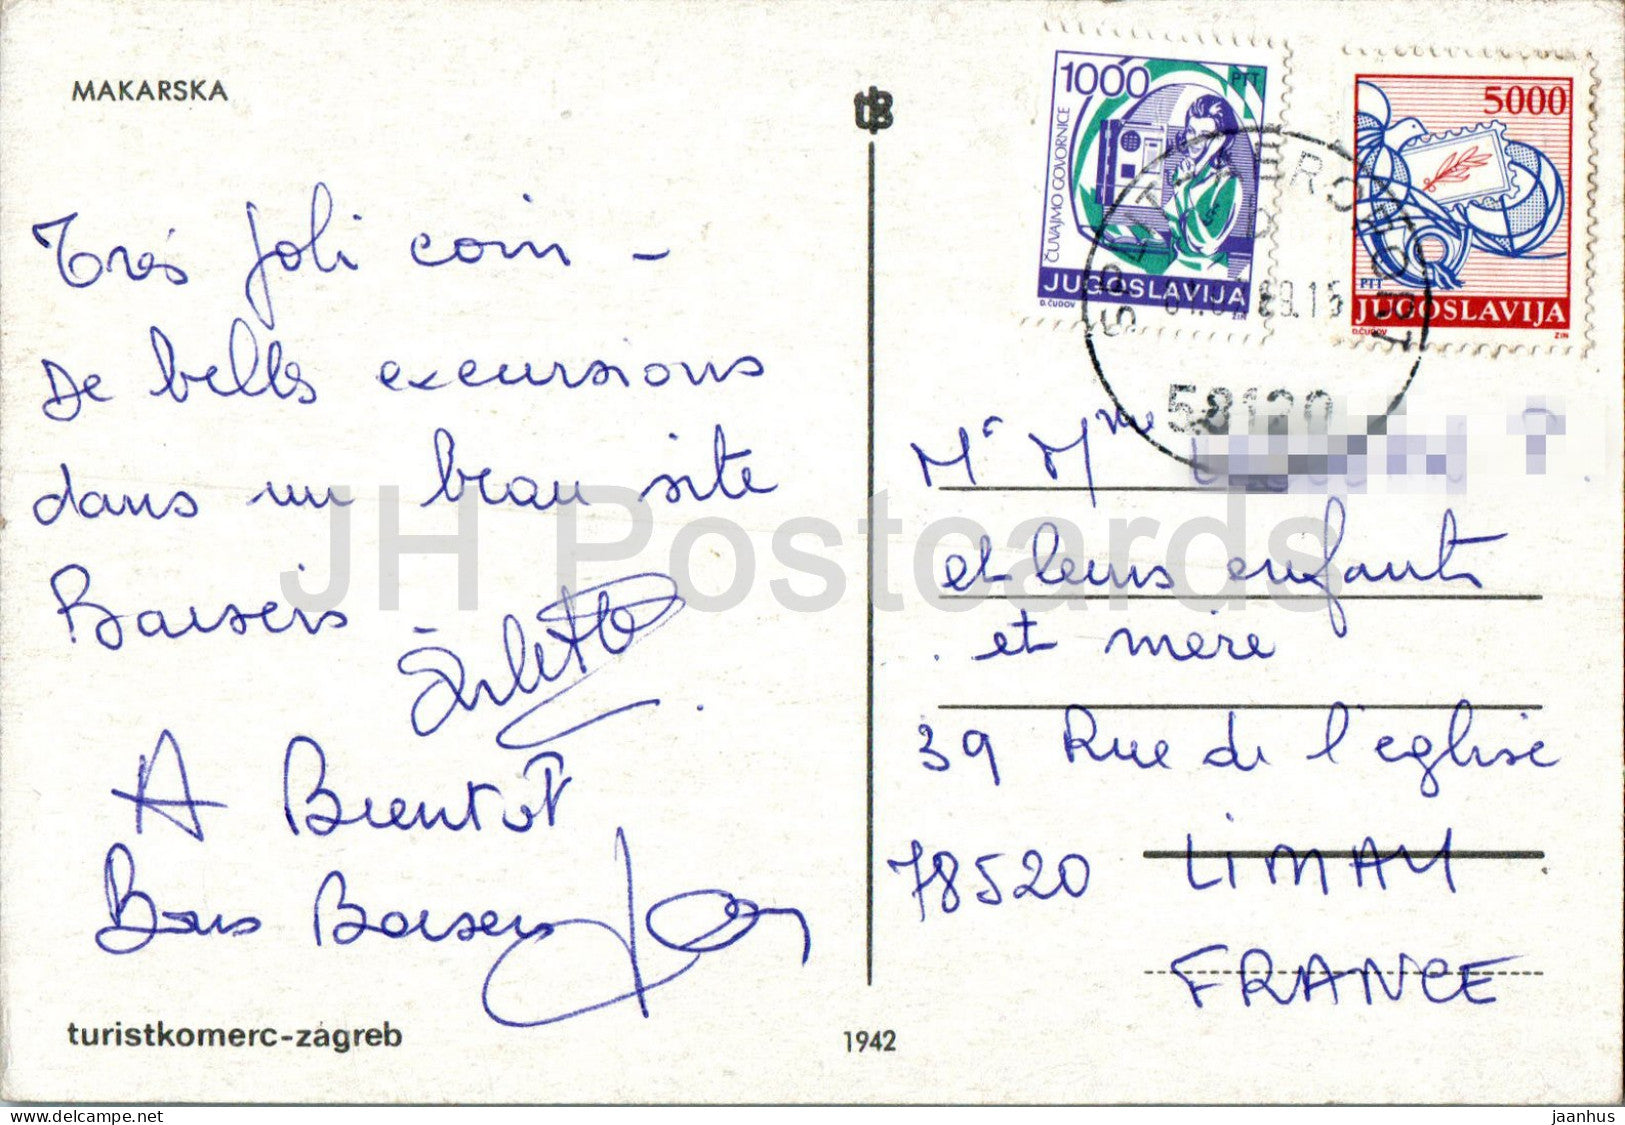 MAKARSKA
Très joli coin -
De belles excursions
dans un beau site
Baisers Arlette
A Bientôt
Bons Baisers
turistkomerc-zagreb
1942
1000
PTT
ČUVAJMO GOVORNICE
JUGOSLAVIJA
D.ČUDOV ZIN
5000
PTT
JUGOSLAVIJA
D.ČUDOV ZIN
SPLIT AERODROM
58120
Mr Mme
et leurs enfants
et mère
39 Rue de l'eglise
78520 LIMAY
FRANCE
JH Postcards
www.delcampe.net
jaanhus